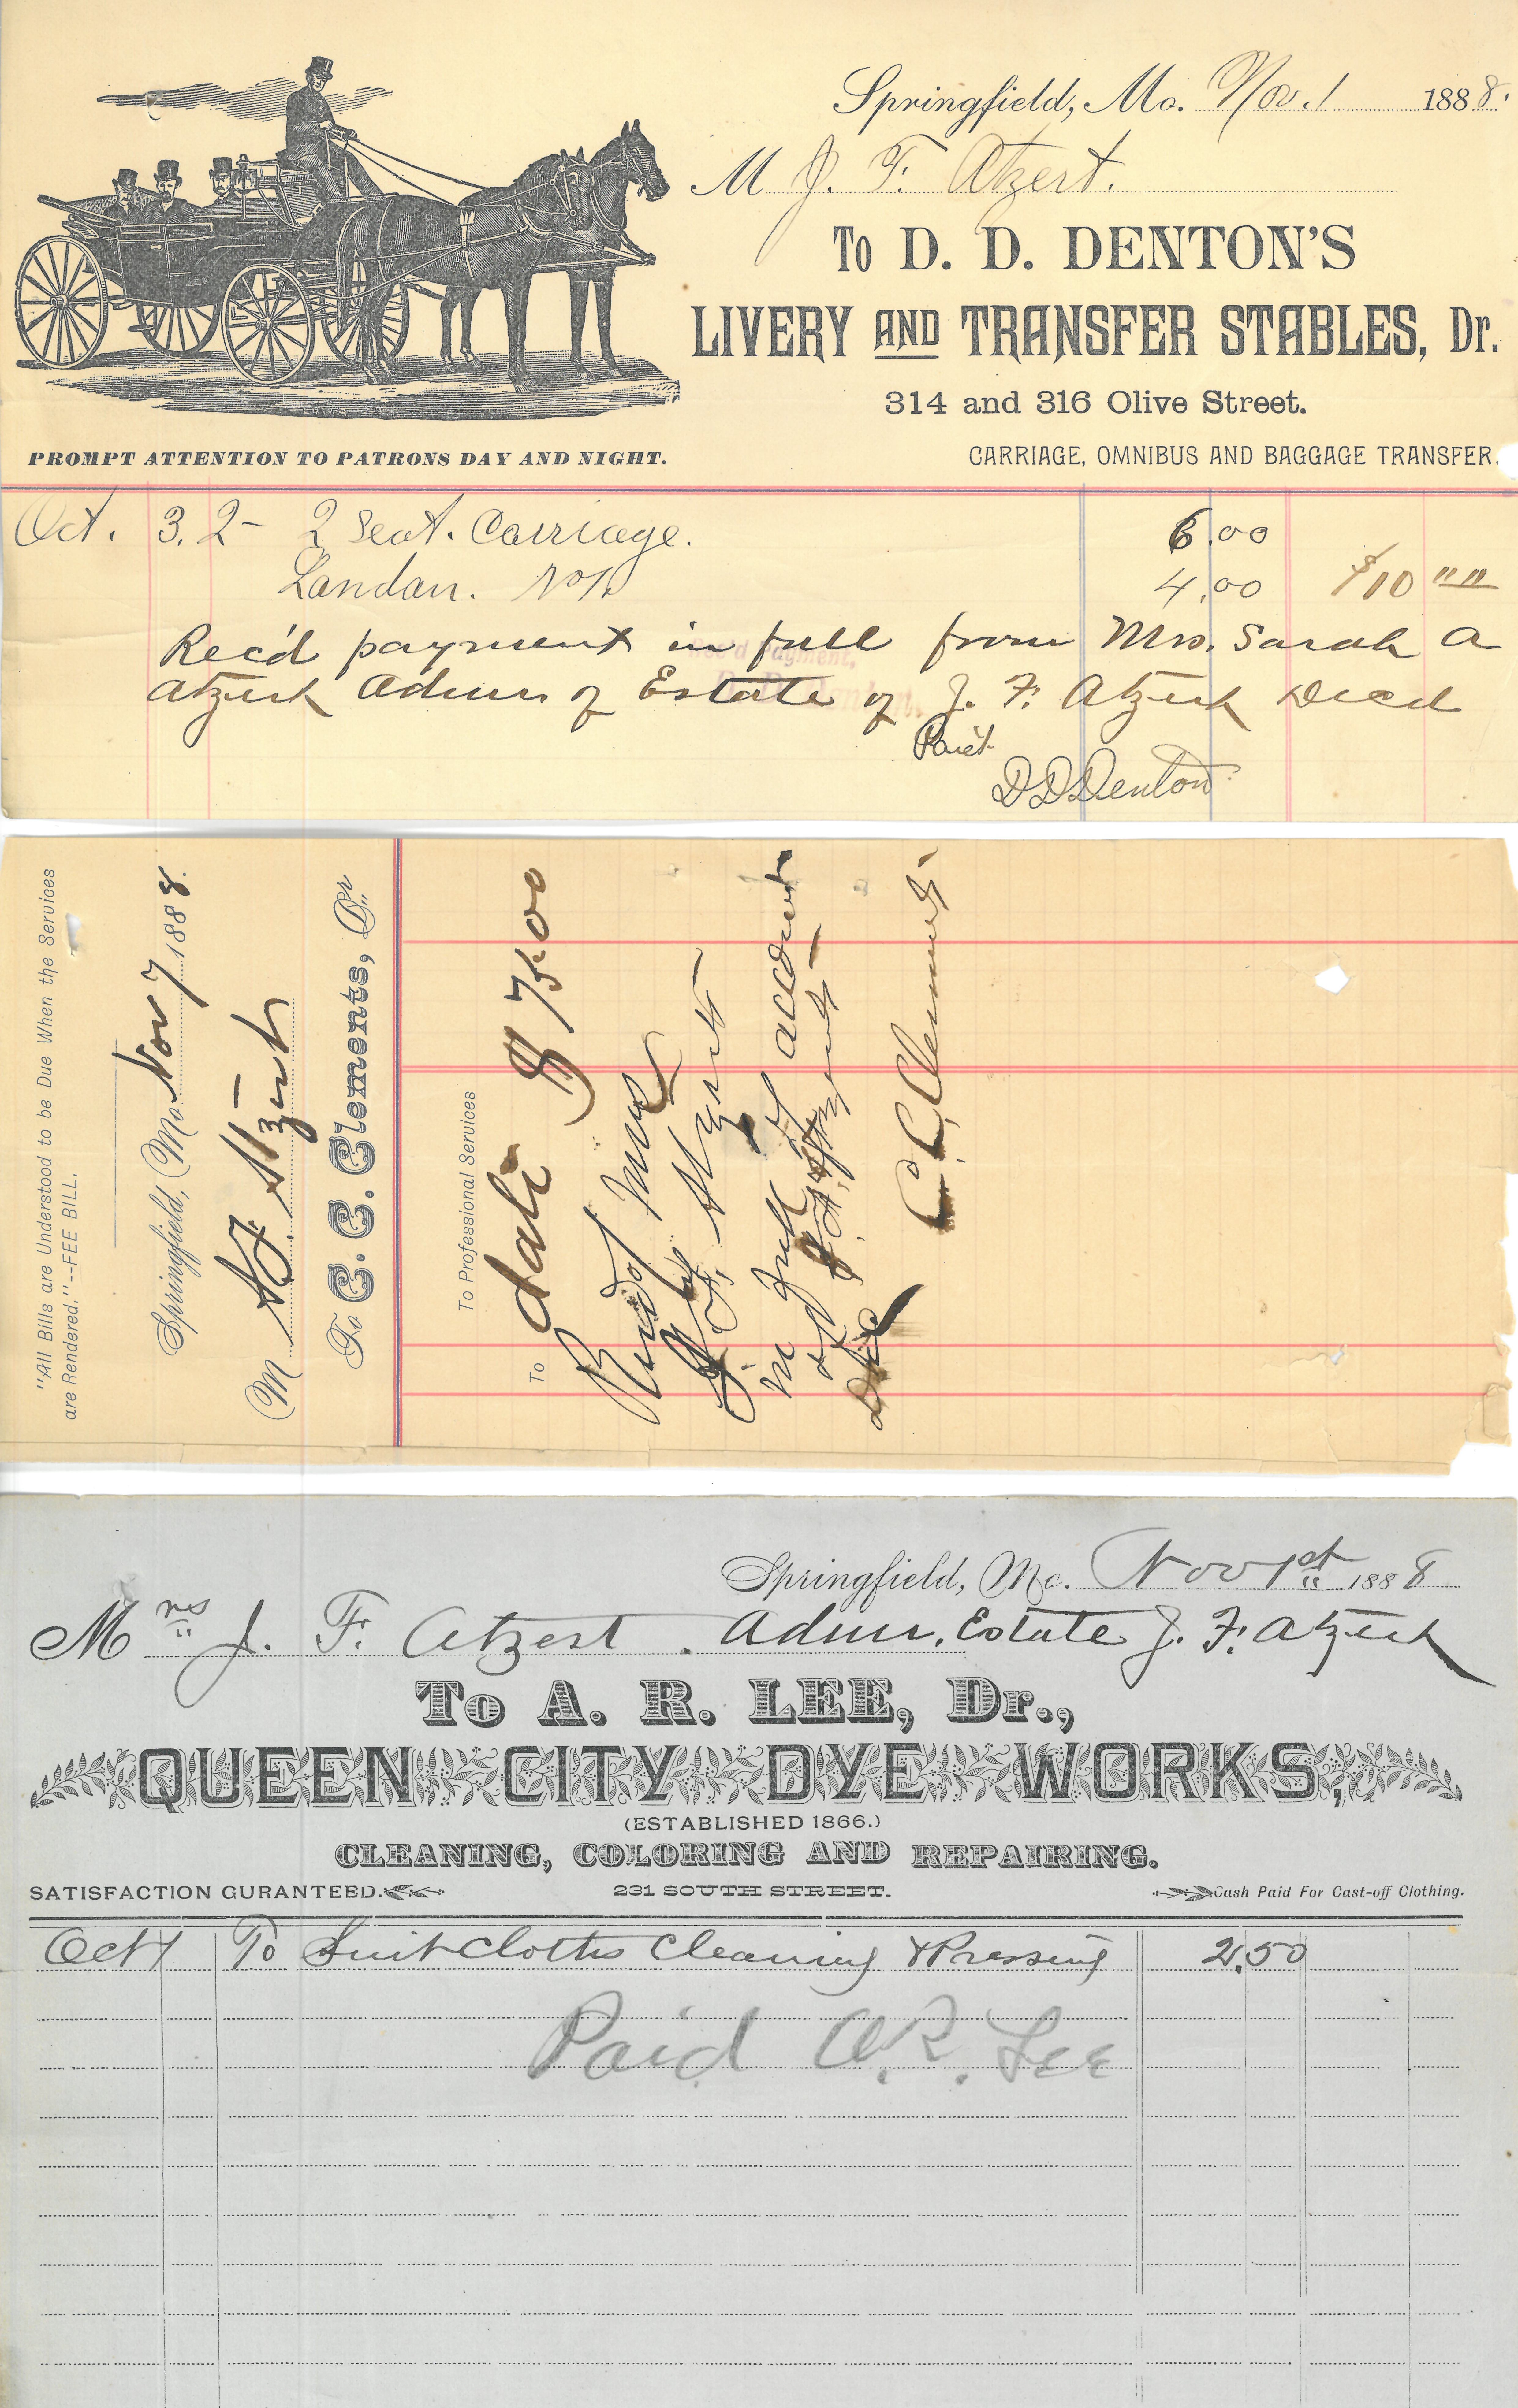 Springfield, Mo. Nov. 1 1888.
M J. F. Atzert.
To D. D. DENTON'S
LIVERY AND TRANSFER STABLES, Dr.
314 and 316 Olive Street.
PROMPT ATTENTION TO PATRONS DAY AND NIGHT.
CARRIAGE, OMNIBUS AND BAGGAGE TRANSFER.
Oct. 3. 2- 2 Seat. Carriage. 6.00
Landau. No1. 4.00 $10 00
Rec'd payment in full from Mrs. Sarah A
Atzert Admr of Estate of J. F. Atzert Decd
Rec'd Payment,
D D Denton
"All Bills are Understood to be Due When the Services
are Rendered."--FEE BILL.
Springfield, Mo. Nov 7 1888.
M Atzert
To C. C. Clements, Dr
To Professional Services
To date $
Recd of Mrs
J. F. Atzert
in full of account
of J. F. Atzert
C. C. Clements
Springfield, Mo. Nov 1st 1888
Mrs J. F. Atzert. Admr. Estate J. F. Atzert
To A. R. LEE, Dr.,
QUEEN CITY DYE WORKS,
(ESTABLISHED 1866.)
CLEANING, COLORING AND REPAIRING.
SATISFACTION GURANTEED. 231 SOUTH STREET. Cash Paid For Cast-off Clothing.
Oct 1 To Suit Cloths Cleaning & Pressing 2.50
Paid A. R. Lee